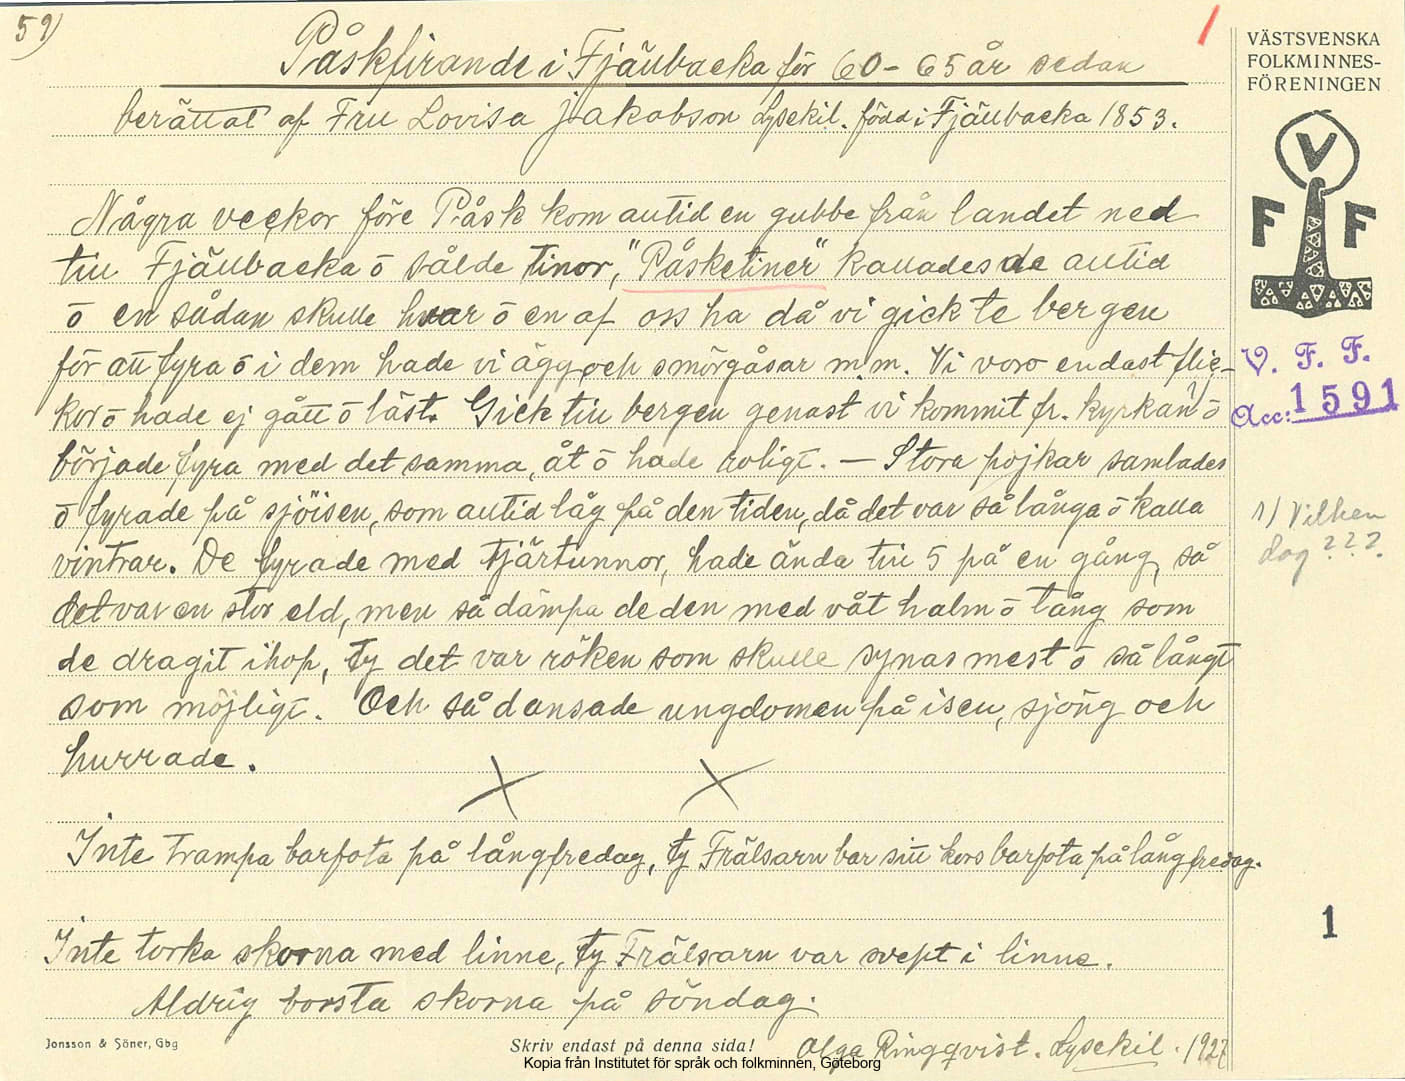 59)
Påskfirande i Fjällbacka för 60-65 år sedan
berättat af Fru Lovisa Jakobson Lysekil. född i Fjällbacka 1853.
Några veckor före Påsk kom alltid en gubbe från landet ned
till Fjällbacka o sålde tinor, "Påsketiner" kallades de alltid
o en sådan skulle hvar o en af oss ha då vi gick te bergen
för att fyra o i dem hade vi ägg och smörgåsar m.m. Vi voro endast flic-
kor o hade ej gått o läst. Gick till bergen genast vi kommit fr. kyrkan 1) o
började fyra med det samma, åt o hade roligt. — Stora pojkar samlades
o fyrade på sjöisen, som alltid låg på den tiden, då det var så långa o kalla
vintrar. De fyrade med tjärtunnor, hade ända till 5 på en gång, så
det var en stor eld, men så dämpa de den med våt halm o tång som
de dragit ihop, ty det var röken som skulle synas mest o så långt
som möjligt. Och så dansade ungdomen på isen, sjöng och
hurrade.
Inte trampa barfota på långfredag, ty Frälsarn bar sitt kors barfota på långfredag.
Inte torka skorna med linne, ty Frälsarn var svept i linne.
Aldrig borsta skorna på söndag.
Olga Ringqvist. Lysekil. 1927
Jonsson & Söner, Gbg
Skriv endast på denna sida!
Kopia från Institutet för språk och folkminnen, Göteborg
VÄSTSVENSKA
FOLKMINNES-
FÖRENINGEN
V
F F
V. F. F.
Acc: 1591
1) Vilken
dag ???
1